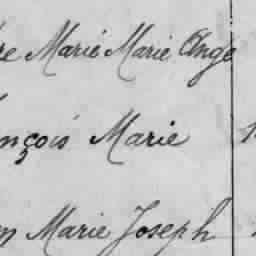 re Marie Marie Ange
nçois Marie
n Marie Joseph